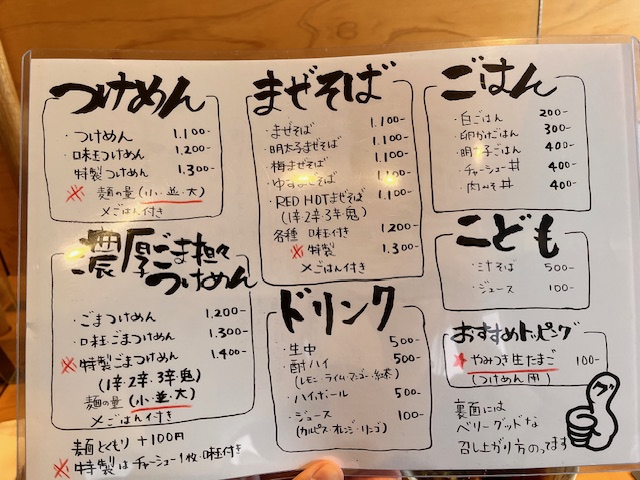 つけめん
・つけめん 1.100-
・味玉つけめん 1.200-
特製つけめん 1.300-
※ 麺の量(小・並・大)
〆ごはん付き
濃厚ごま担々
つけめん
・ごまつけめん 1.200-
・味玉ごまつけめん 1.300-
※特製ごまつけめん 1.400-
(1辛2辛・3辛鬼)
麺の量(小・並・大)
〆ごはん付き
麺大もり +100円
※特製はチャーシュー1枚・味玉付き
まぜそば
・まぜそば 1.100-
・明太子まぜそば 1.100-
・梅まぜそば 1.100-
・ゆずまぜそば 1.100-
・RED HOTまぜそば 1.100-
(1辛2辛・3辛鬼)
各種 味玉付き 1.200-
※特製 1.300-
〆ごはん付き
ドリンク
・生中 500-
・酎ハイ 500-
(レモン・ライム・マンゴー・紅茶)
・ハイボール 500-
・ジュース 100-
(カルピス・オレンジ・りんご)
ごはん
・白ごはん 200-
・卵かけごはん 300-
・明太子ごはん 400-
・チャーシュー丼 400-
・肉みそ丼 400-
こども
・ミニそば 500-
・ジュース 100-
おすすめトッピング
★やみつき生たまご 100-
(つけめん用)
裏面には
ベリーグッドな
召し上がり方のってます
グ